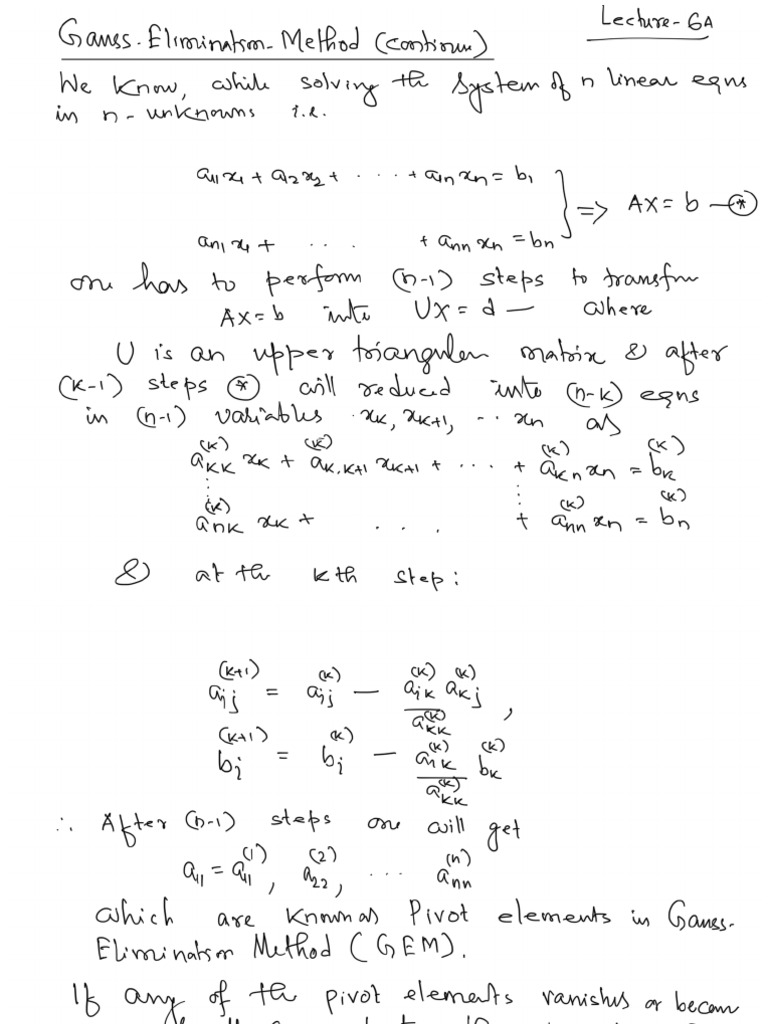 Lecture-6A
Gauss-Elimination-Method (continue)
We know, while solving the system of n linear eqns
in n-unknowns i.e.
a₁₁x₁ + a₁₂x₂ + ... + a₁ₙxₙ = b₁
⇒ AX = b —(*)
aₙ₁x₁ + ... + aₙₙxₙ = bₙ
one has to perform (n-1) steps to transfm
AX = b into UX = d — where
U is an upper triangular matrix & after
(k-1) steps (*) will reduced into (n-k) eqns
in (n-1) variables xₖ, xₖ₊₁, ... xₙ as
a_{kk}^{(k)} x_k + a_{k,k+1}^{(k)} x_{k+1} + ... + a_{kn}^{(k)} x_n = b_k^{(k)}
⋮ ⋮
a_{nk}^{(k)} x_k + ... + a_{nn}^{(k)} x_n = b_n^{(k)}
& at the kth step:
a_{ij}^{(k+1)} = a_{ij}^{(k)} - \frac{a_{ik}^{(k)} a_{kj}^{(k)}}{a_{kk}^{(k)}},
b_i^{(k+1)} = b_i^{(k)} - \frac{a_{ik}^{(k)}}{a_{kk}^{(k)}} b_k^{(k)}
∴ After (n-1) steps one will get
a_{11} = a_{11}^{(1)}, a_{22}^{(2)}, ... a_{nn}^{(n)}
which are known as Pivot elements in Gauss-
Elimination Method (GEM).
If any of the pivot elements vanishes or becom